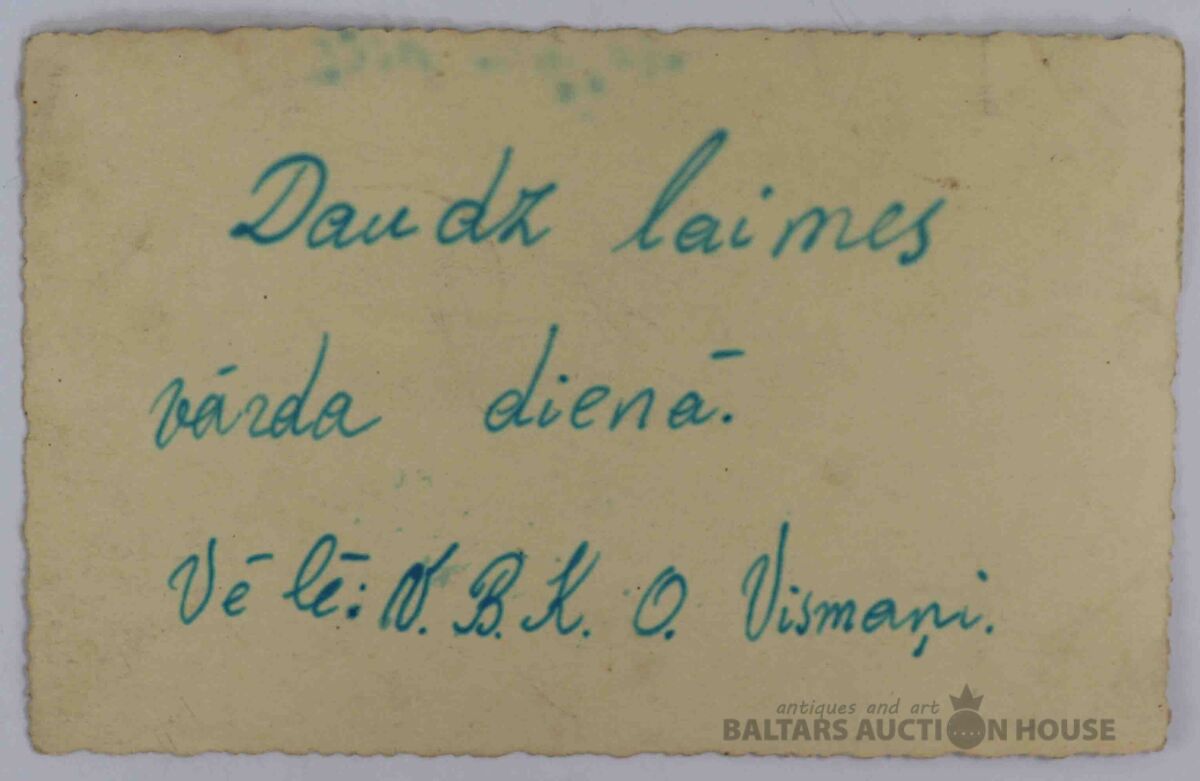 Daudz laimes
vārda dienā.
Vēlē: V. B. K. O. Vismaņi.
antiques and art
BALTARS AUCTION HOUSE